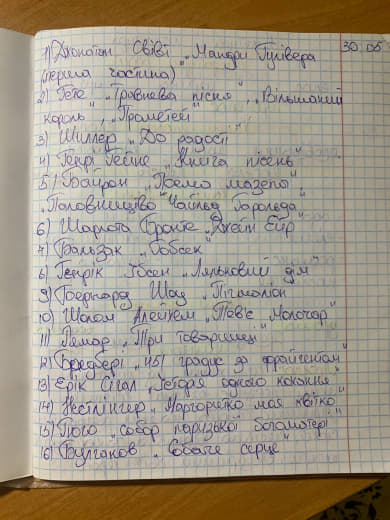 1) Джонатан Свівт „Мандри Гулівера 30.05
(перша частина)
2) Гете „Травнева пісня", „Вільшаний
король", „Прометей"
3) Шиллер „До радості
4) Генрі Гейне „Книга пісень"
5) Байрон „Поема мазепа"
„Паломництво Чайльд Гарольда"
6) Шарлота Бронте „Джейн Ейр"
7) Бальзак „Гобсек"
8) Генрік Ібсен „Ляльковий дім"
9) Бернард Шоу „Пігмаліон
10) Шолом Алейхем „Тев'є Молочар"
11) Ремарк „Три товариші
12) Бредбері „451 градус за фаренгейтом"
13) Ерік Сігал „Історія одного кохання"
14) Нестлінгер „Маргаритко моя квітко"
15) Гюго „собор паризької богоматері"
16) Булгаков „Собаче серце"